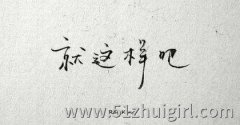 就这样吧
www.51zhuigirl.com